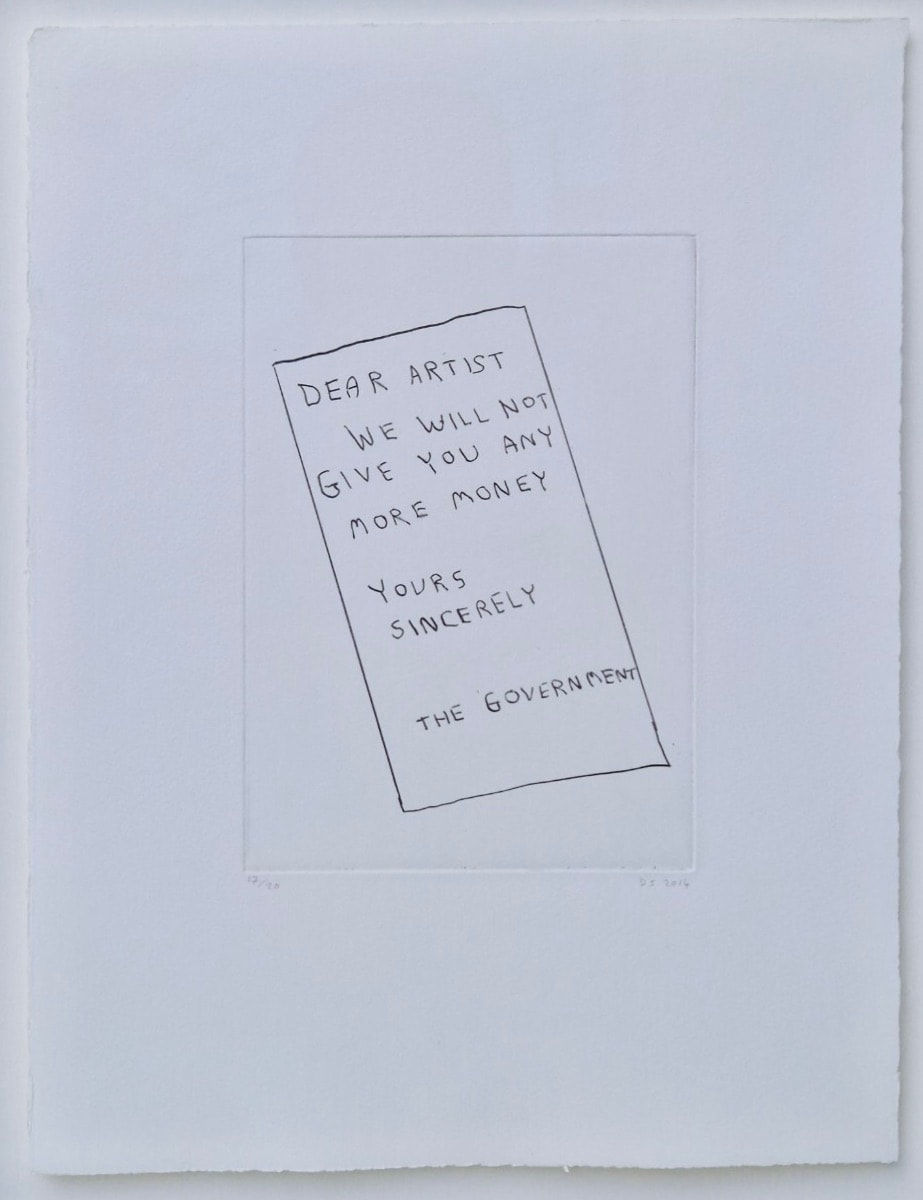 DEAR ARTIST
WE WILL NOT
GIVE YOU ANY
MORE MONEY
YOURS
SINCERELY
THE GOVERNMENT
DS 2014